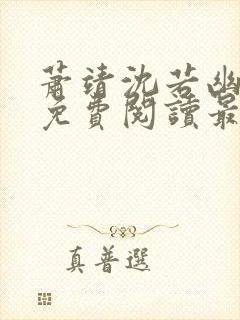 蕭靖沈若幽
免費閱讀最
真普選